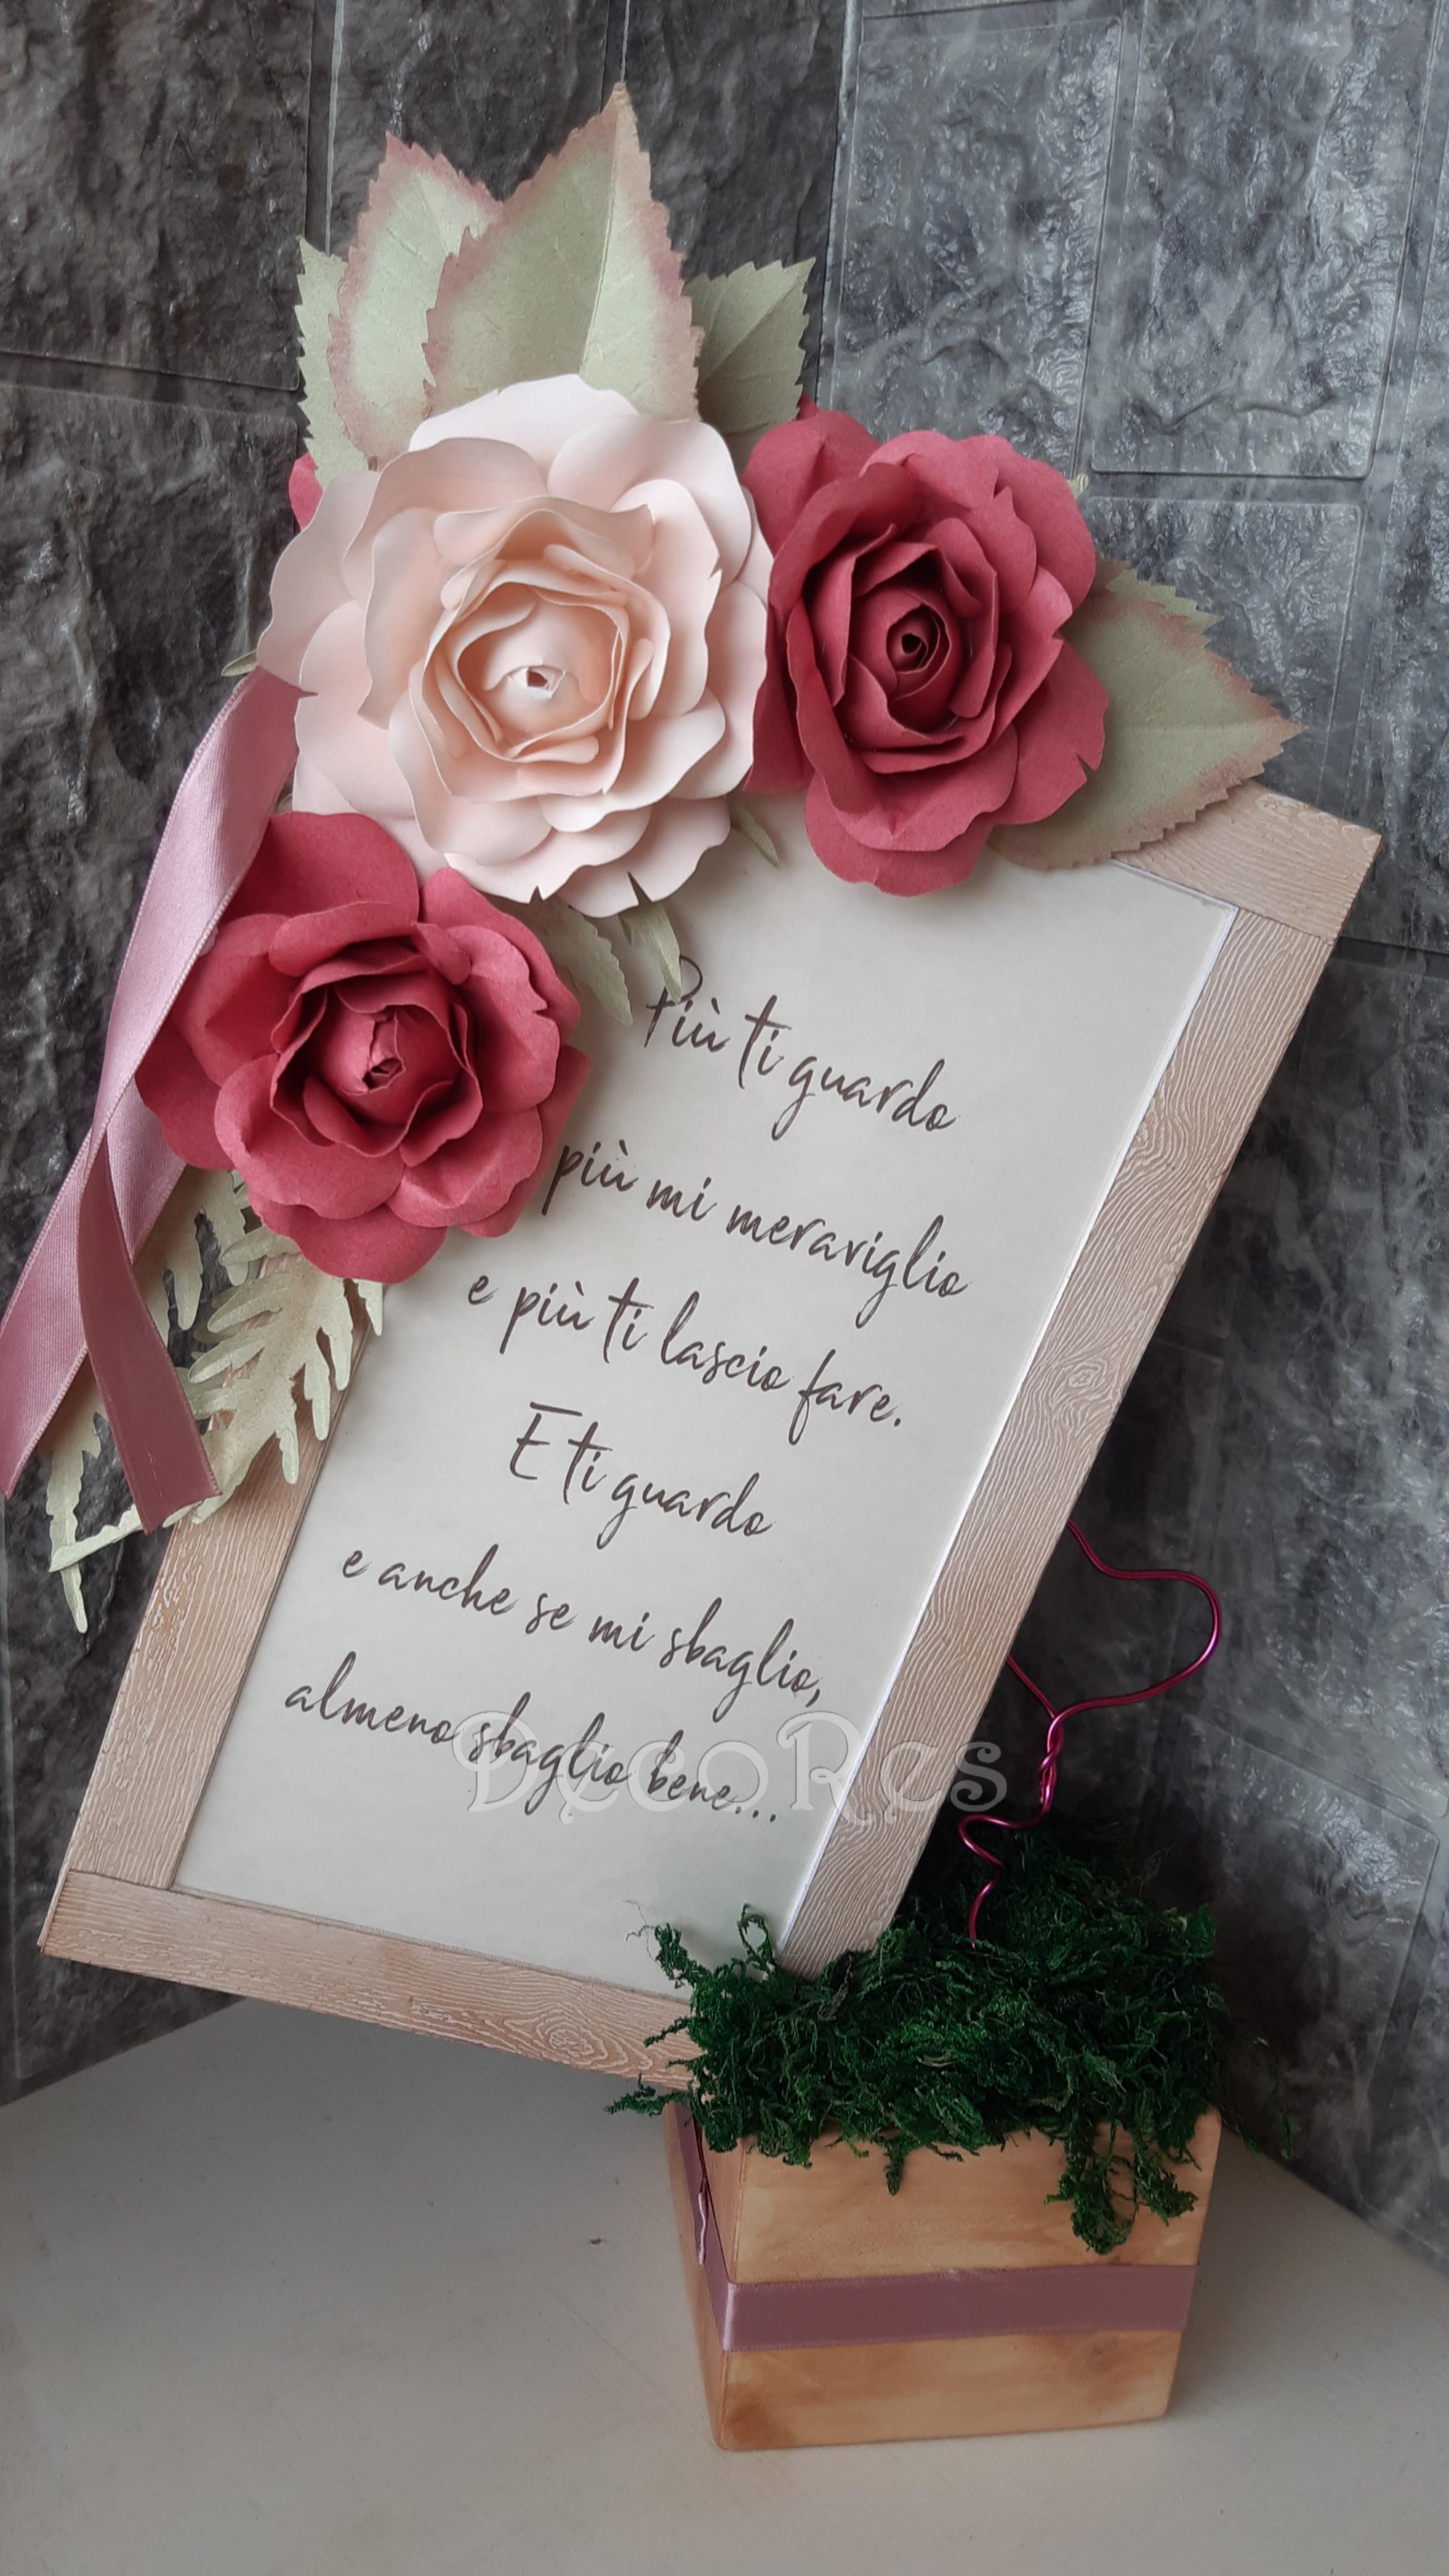 Più ti guardo
più mi meraviglio
e più ti lascio fare.
E ti guardo
e anche se mi sbaglio,
almeno sbaglio bene...
DecoRes